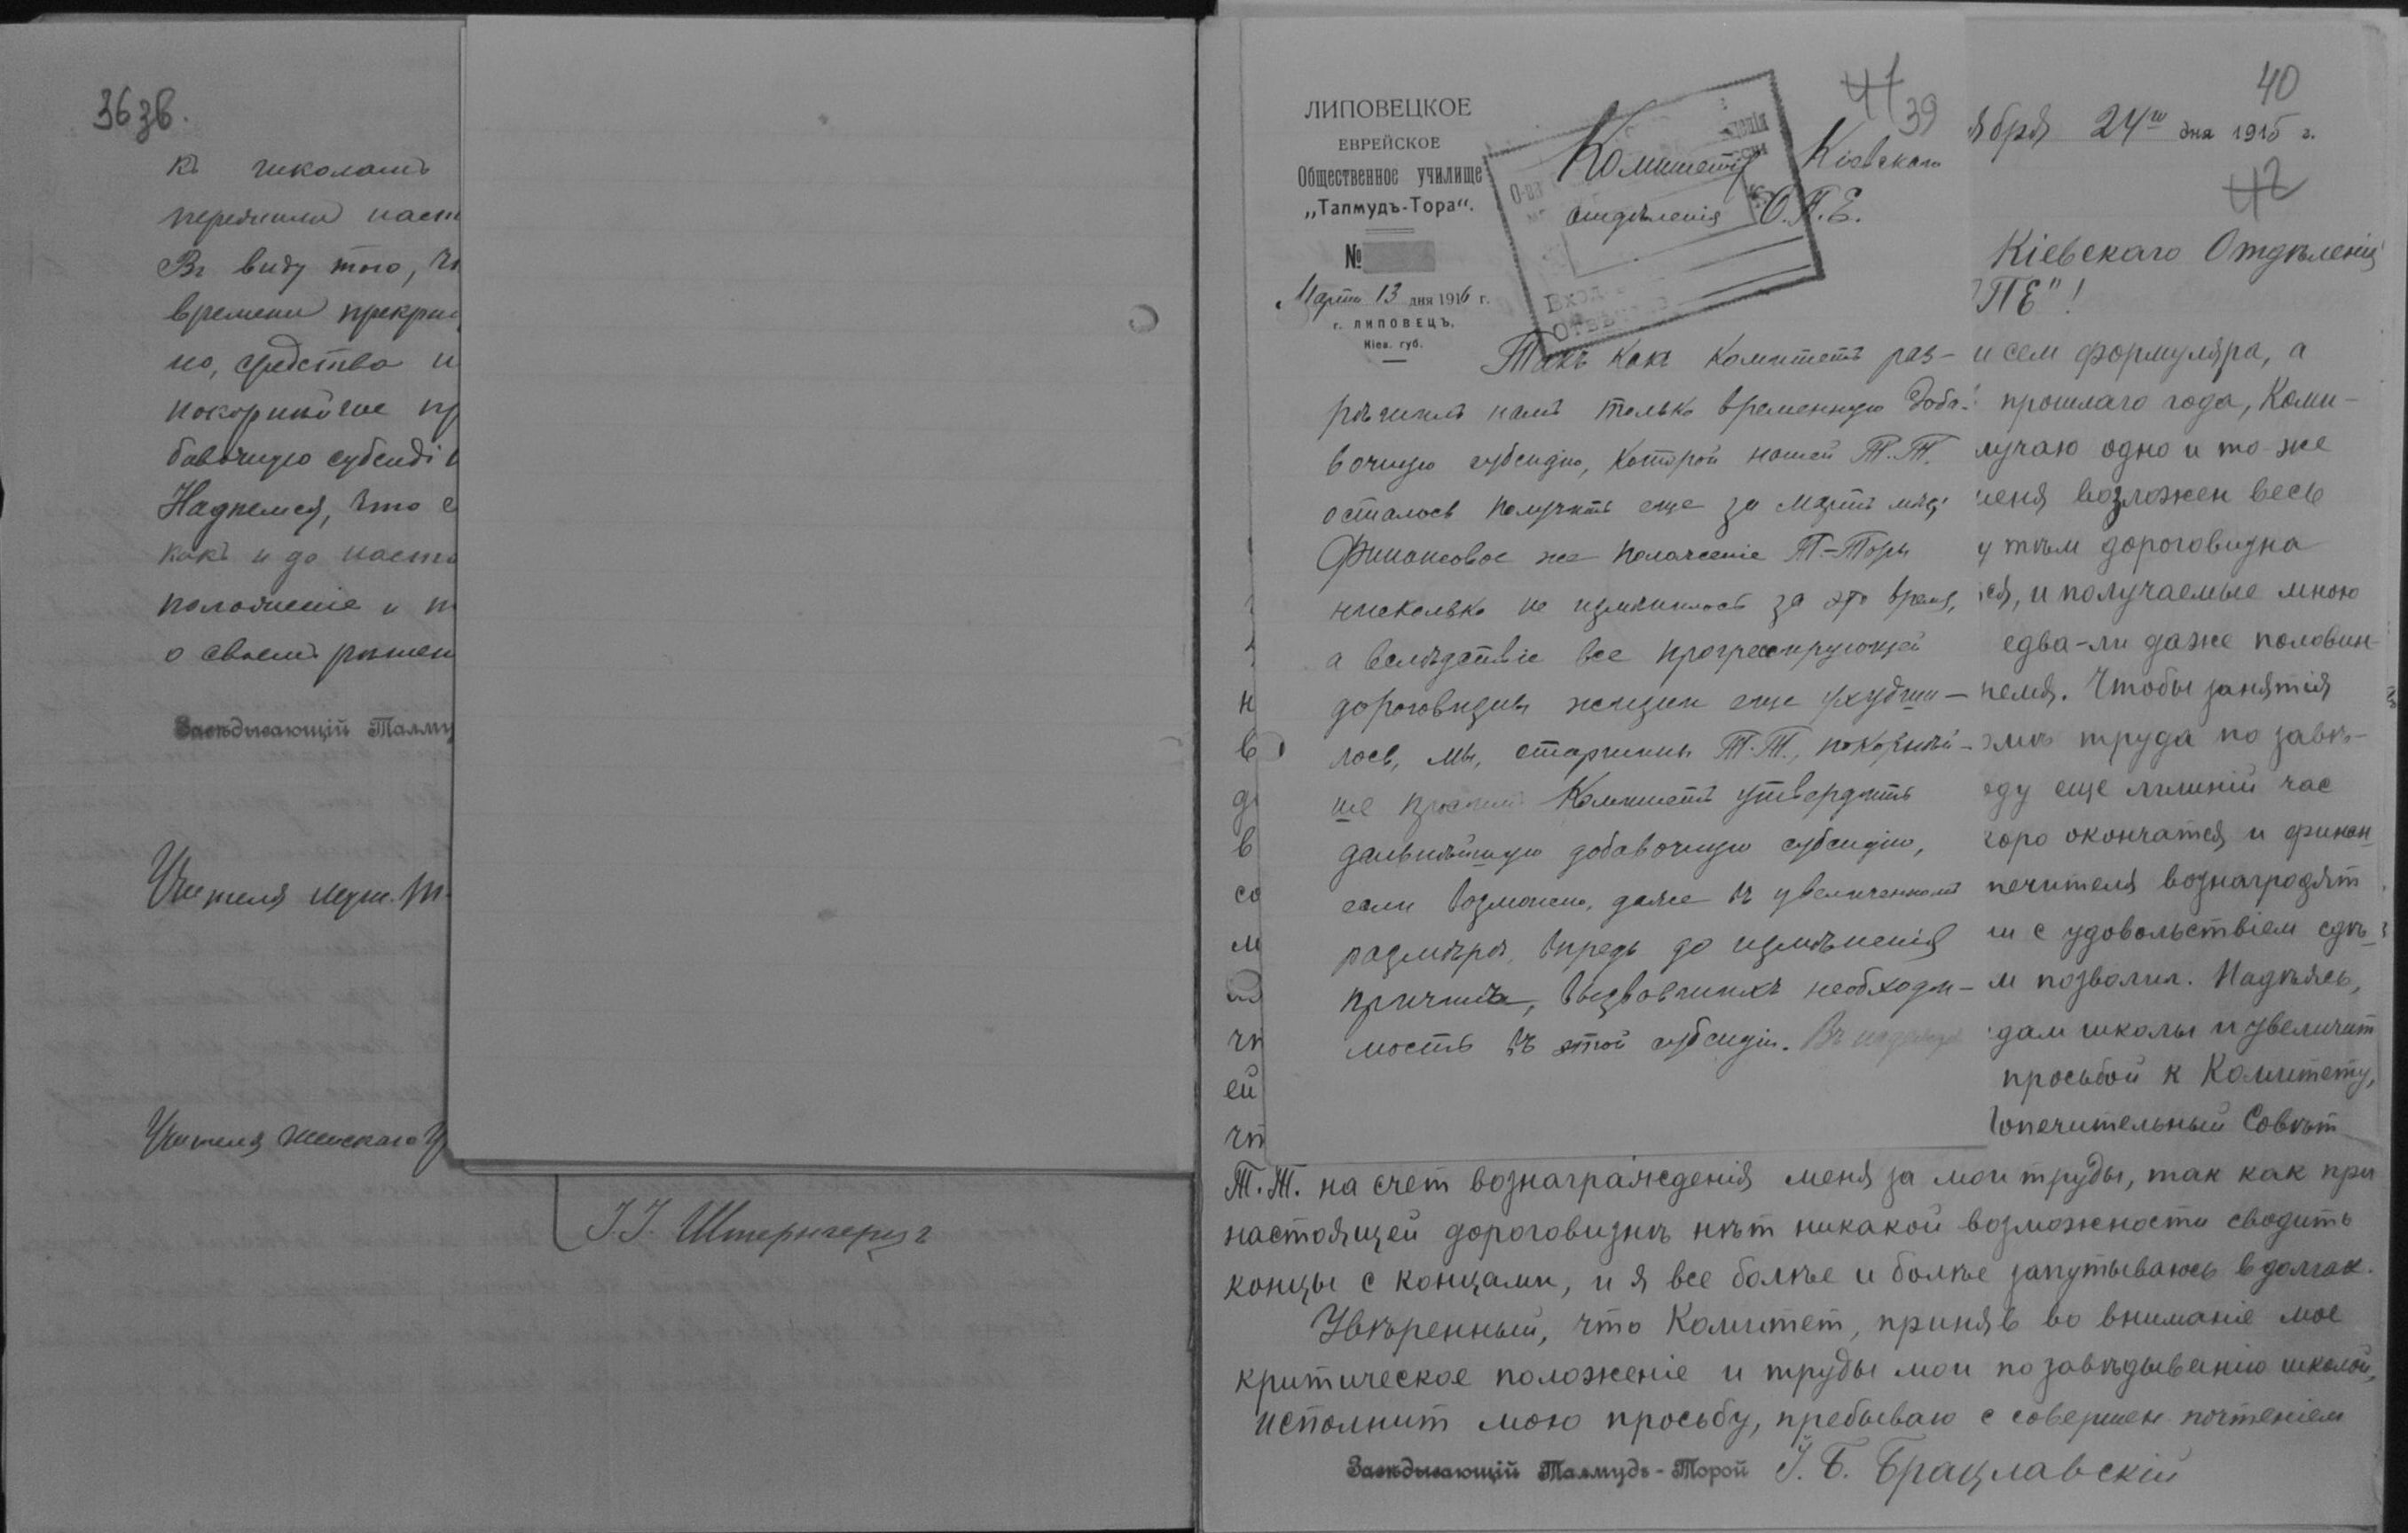 36 зв.
къ школамъ
перешили наст
Въ виду того, чт
времени прекра
но, средства и
покорнѣйше пр
бавочную субсиді
Надѣемся, что с
какъ и до насто
положеніе и п
о своемъ рѣшен
Завѣдывающій Талму
Учителя муж. т.
Учителя женскаго у
І. І. Штернгерцъ
ЛИПОВЕЦКОЕ
ЕВРЕЙСКОЕ
Общественное училище
„Талмудъ-Тора“.
№
Марта 13 дня 1916 г.
г. ЛИПОВЕЦЪ,
Кіев. губ.
41
39
Комитету Кіевскаго
отдѣленія О.П.Е.
Вход
Отвѣ
Такъ какъ Комитетъ раз-
рѣшилъ намъ только временную доба-
вочную субсидію, которой нашей Т.Т.
осталось получить еще за мартъ мѣс.
Финансовое же положеніе Т-Торы
нисколько не измѣнилось за это время,
а вслѣдствіе все прогрессирующей
дороговизны жизни еще ухудши-
лось, мы, старшины Т.Т., покорнѣй-
ше просимъ Комитетъ утвердить
дальнѣйшую добавочную субсидію,
если возможно, даже въ увеличенномъ
размѣрѣ, впредь до измѣненія
причинъ, вызвавшихъ необходи-
мость въ этой субсидіи. Въ надеждѣ
н
в
д
в
со
м
чт
ей
чт
40
ября 24го дня 1915 г.
42
Кіевскаго Отдѣленія
ПЕ"!
исем формуляра, а
прошлаго года, Коми-
лучаю одно и то-же
меня возложен весь
у тѣм дороговизна
ся, и получаемые мною
едва-ли даже половин-
немя. Чтобы занятія
омъ труда по завѣ-
еду еще лишній час
коро окончатся и финан
печителя вознаградят
ш с удовольствіем сдѣ-
м позволил. Надѣясь,
дам школы и увеличит
просьбой к Комитету,
Попечительный Совѣт
Т.Т. на счет вознагражденія меня за мои труды, так как при
настоящей дороговизнѣ нѣт никакой возможности сводить
концы с концами, и я все болѣе и болѣе запутываюсь в долгах.
Увѣренный, что Комитет, приняв во вниманіе мое
критическое положеніе и труды мои по завѣдыванію школой,
исполнит мою просьбу, пребываю с совершен. почтеніем
Завѣдывающій Талмудъ-Торой І. Б. Брацлавскій